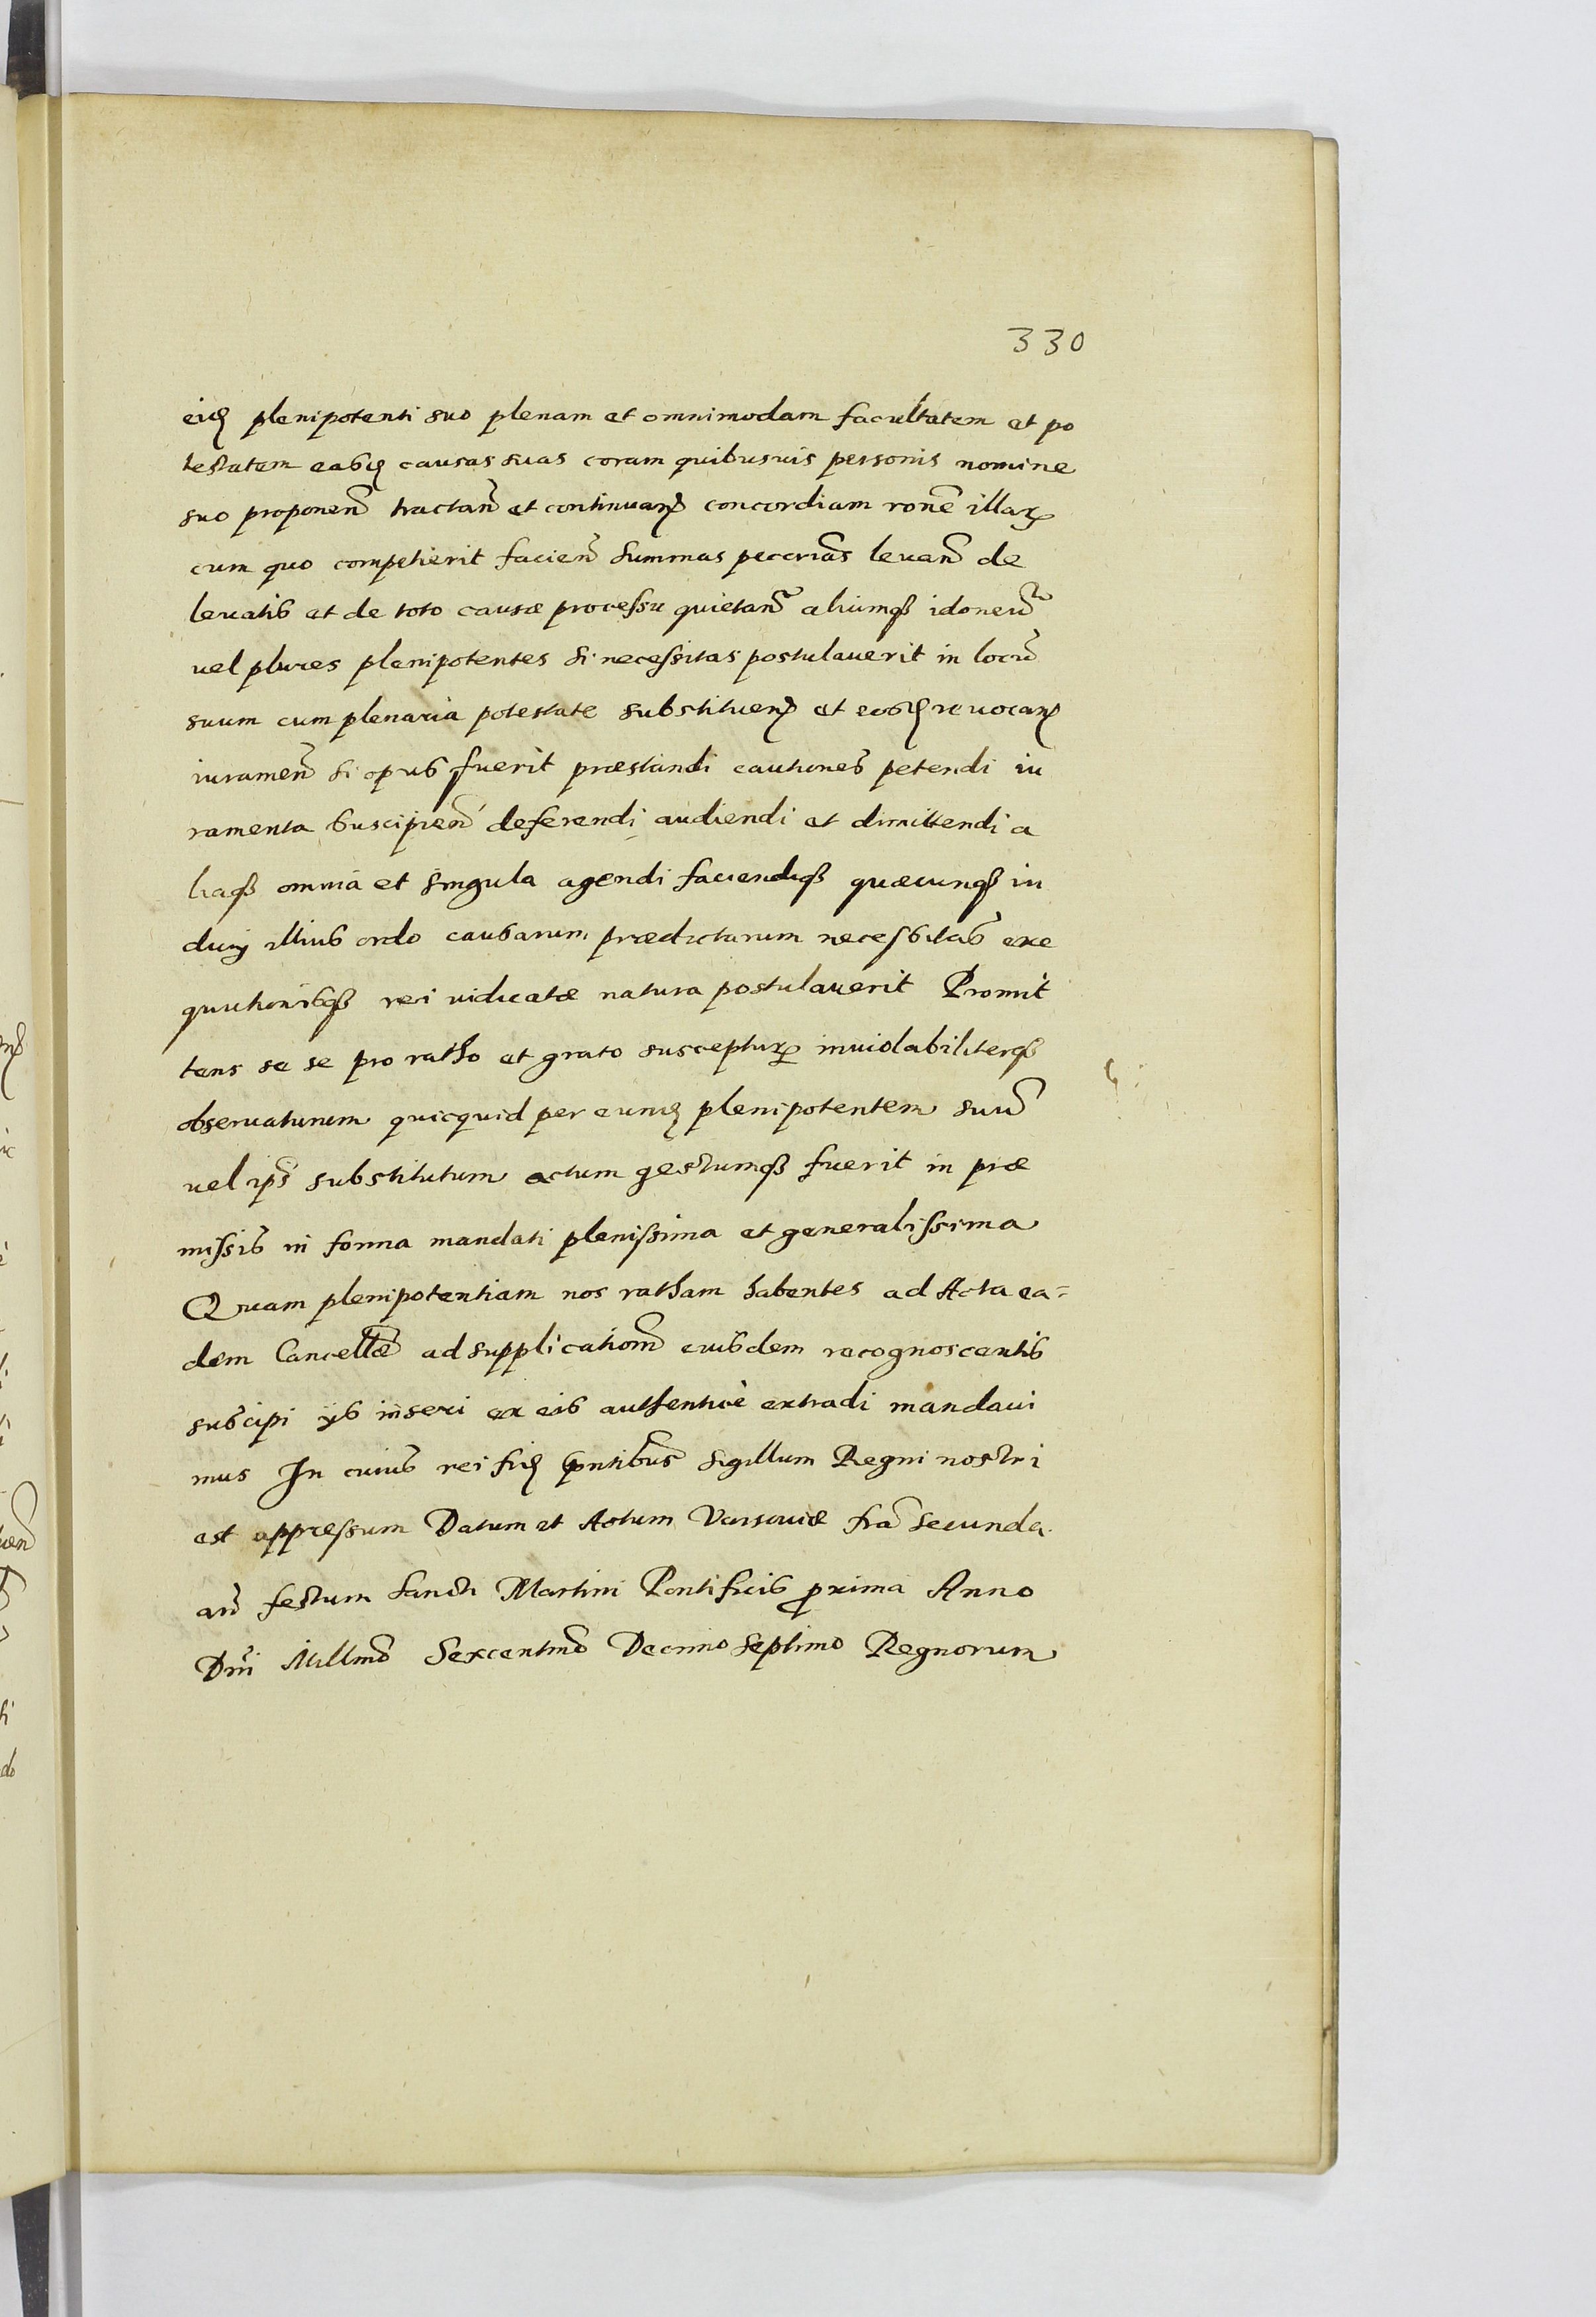 330
eidē plenipotenti suo plenam et omnimodam facultatem et po
testatem easdē causas suas coram quibusuis personis nomine
suo proponen̄ tractan̄ et continuan̄ concordiam ronē illarꝝ
cum quo competierit facien̄ summas peccrias̄ leuan̄ de
leuatis et de toto causæ processu quietan̄ aliumqꝫ idoneū
uel plures plenipotentes si necessitas postulauerit in locū
suum cum plenaria potestate substituen̄ et eosdē reuocan̄
iuramen̄ si opus fuerit præstandi cautiones petendi iu
ramenta suscipien̄ deferendi audiendi et dimittendi a
liaqꝫ omnia et singula agendi faciendiqꝫ quæcunqꝫ iu
dicij illius ordo causarum prædictarum necessitas exe
quutionisqꝫ rei iudicatæ natura postulauerit Promit
tens se se pro ratho et grato suscepturꝝ inuiolabiliterqꝫ
obseruaturum quicquid per eundē plenipotentem suū
uel ipī substitutum actum gestumqꝫ fuerit in præ
missis in forma mandati plenissima et generalissima
Quam plenipotentiam nos ratham habentes ad Acta ea=
dem Cancellǣ ad supplicationē eiusdem recognoscentis
suscipi ijs inseri ex eis authenticè extradi mandaui
mus In cuius rei fidē pn̄tibus sigillum Regni nostri
est appressum Datum et Actum Varsouiæ fr̄a secunda
an̄ festum Sancti Martini Pontificis proxima Anno
Dn̄i Millmō Sexcentmō Decimo Septimo Regnorum